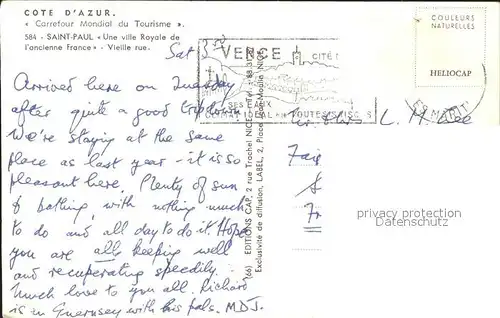 COTE D'AZUR.
« Carrefour Mondial du Tourisme ».
584 - SAINT-PAUL « Une ville Royale de
l'ancienne France » - Vieille rue.
Sat 3.50
Arrived here on Tuesday
after quite a good trip down.
We're staying at the same
place as last year - it is so
pleasant here. Plenty of sun
& bathing, with nothing much
to do and all day to do it. Hope
you are all keeping well
and recuperating speedily.
Much love to you all. Richard
is in Guernsey with his pals. MDJ.
(66) EDITIONS CAP, 2 rue Trachel NICE
Exclusivité de diffusion, LABEL, 2, Place NICE
VENCE
CITÉ
SES EAUX
COULEURS
NATURELLES
HELIOCAP
L. M.
privacy protection
Datenschutz